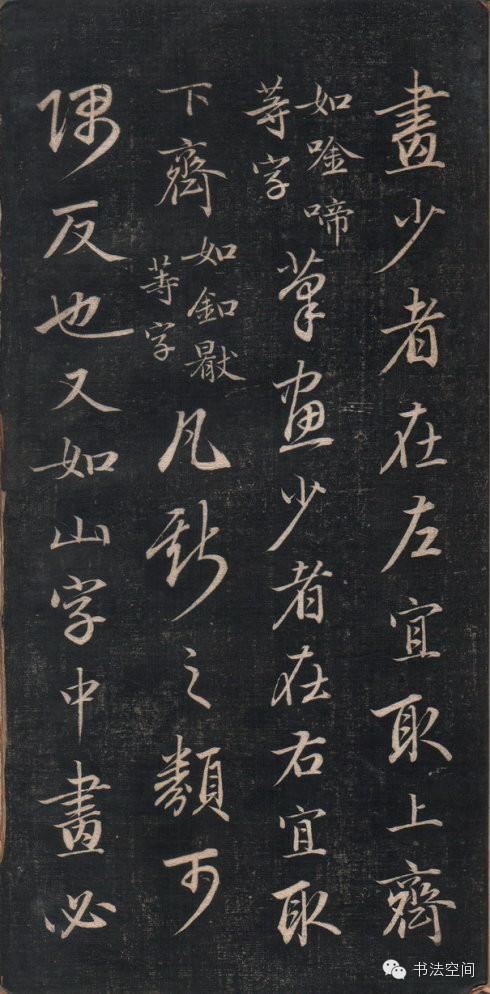 畫少者在左宜取上齊
如唫啼
等字
笔画少者在右宜取
下齊
如釦
等字
凡斯之類可
隅反也又如山字中畫必
书法空间